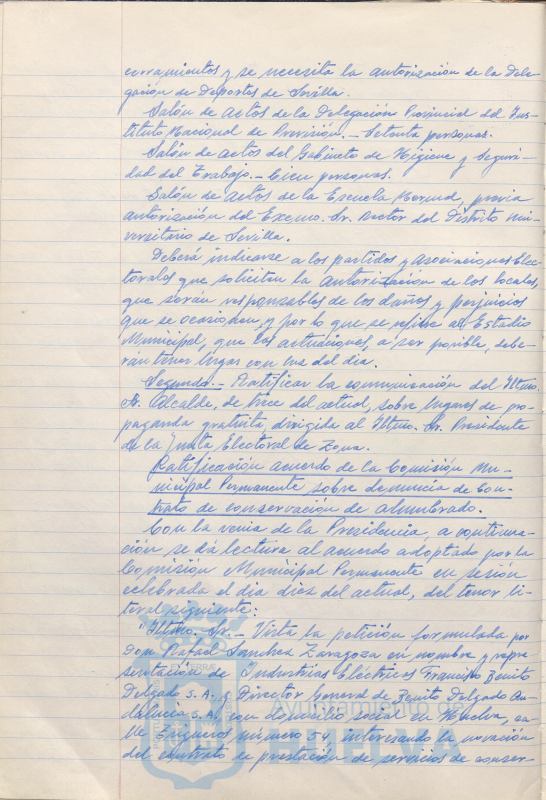 cerramientos y se necesita la autorización de la Dele-
gación de Deportes de Sevilla.
Salón de actos de la Delegación Provincial del Ins-
tituto Nacional de Previsión.- Setenta personas.
Salón de actos del Gabinete de Higiene y Seguri-
dad del Trabajo.- Cien personas.
Salón de actos de la Escuela Normal, previa
autorización del Excmo. Sr. Rector del Distrito Uni-
versitario de Sevilla.
Deberá indicarse a los partidos y asociaciones Elec-
torales que soliciten la autorización de los locales,
que serán responsables de los daños y perjuicios
que se ocasionen, y por lo que se refiere al Estadio
Municipal, que las actuaciones, a ser posible, debe-
rán tener lugar con luz del día.
Segundo.- Ratificar la comunicación del Iltmo.
Sr. Alcalde, de trece del actual, sobre lugares de pro-
paganda gratuita dirigida al Iltmo. Sr. Presidente
de la Junta Electoral de Zona.
Ratificación acuerdo de la Comisión Mu-
nicipal Permanente sobre denuncia de Con-
trato de conservación de alumbrado.
Con la venia de la Presidencia, a continua-
ción, se dá lectura al acuerdo adoptado por la
Comisión Municipal Permanente en sesión
celebrada el día diez del actual, del tenor li-
teral siguiente:
"Iltmo. Sr.- Vista la petición formulada por
Don Rafael Sánchez Zaragoza en nombre y repre
sentación de "Industrias Eléctricas Francisco Benito
Delgado S.A. y Director General de Benito Delgado An-
dalucia S.A. con domicilio social en Huelva, ca-
lle número 54 interesando la novación
del contrato de prestación de servicios de conser-
Ayuntamiento de
HUELVA